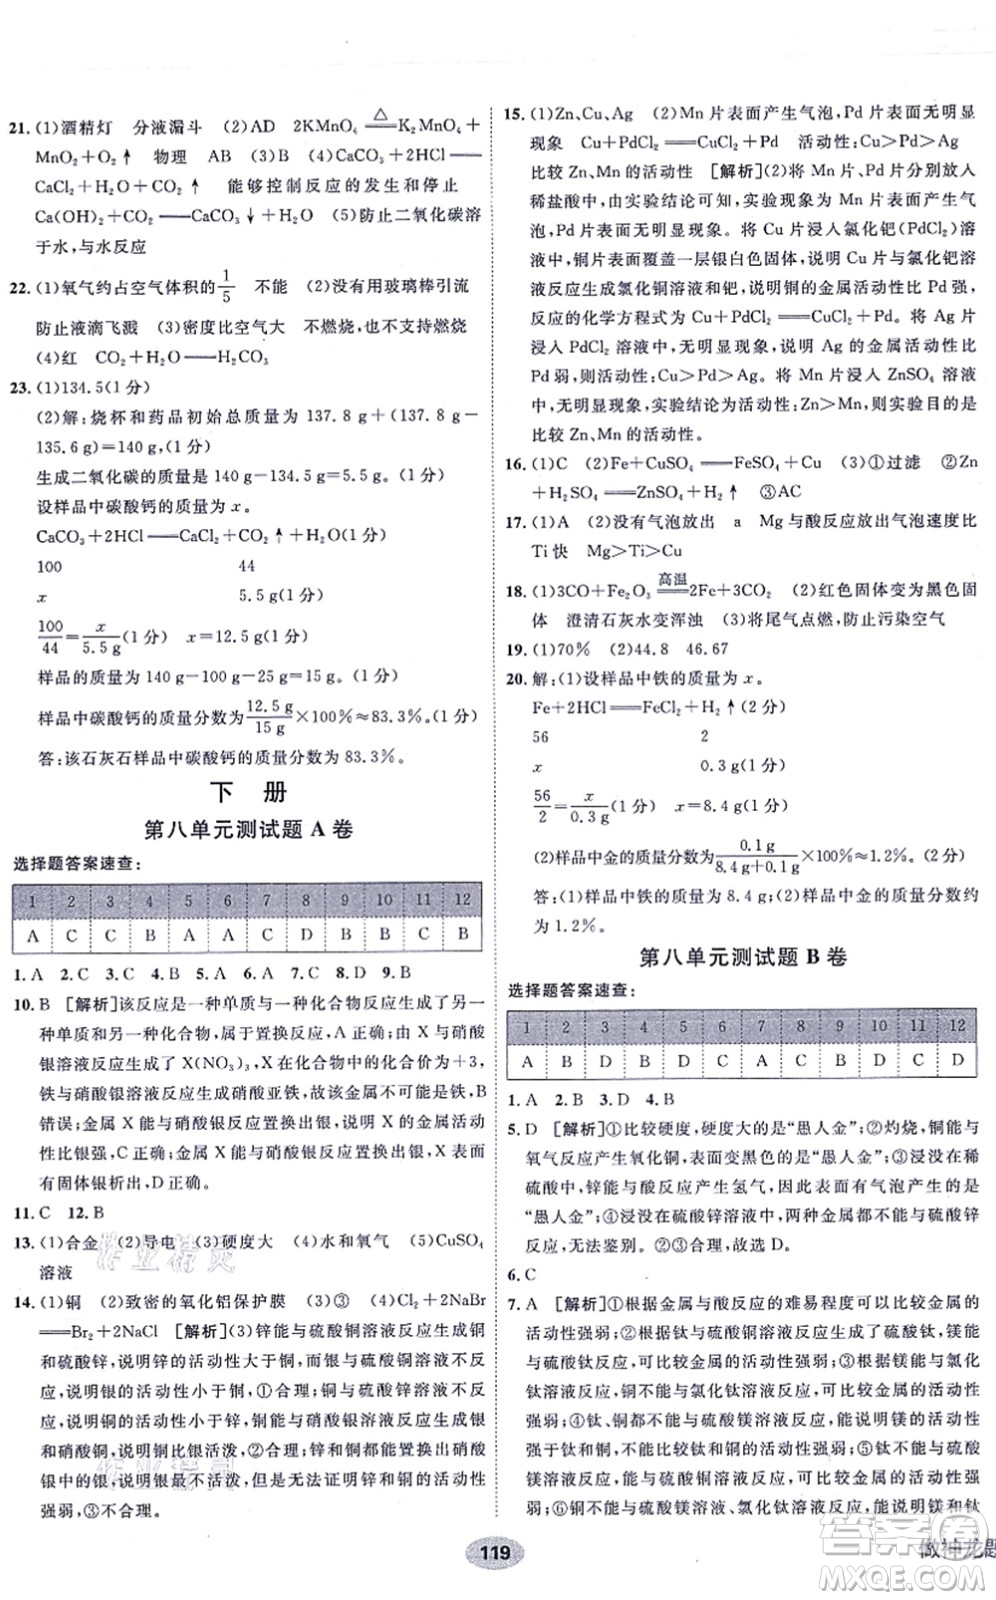 21. (1)酒精灯　分液漏斗　(2)AD　2KMnO₄ =△= K₂MnO₄+
MnO₂+O₂↑　物理　AB　(3)B　(4)CaCO₃+2HCl══
CaCl₂+H₂O+CO₂↑　能够控制反应的发生和停止
Ca(OH)₂+CO₂══CaCO₃↓+H₂O　(5)防止二氧化碳溶
于水,与水反应
22. (1)氧气约占空气体积的1/5　不能　(2)没有用玻璃棒引流
防止液滴飞溅　(3)密度比空气大　不燃烧,也不支持燃烧
(4)红　CO₂+H₂O══H₂CO₃
23. (1)134.5(1分)
(2)解:烧杯和药品初始总质量为137.8 g+(137.8 g-
135.6 g)=140 g,(1分)
生成二氧化碳的质量是140 g-134.5=5.5 g。(1分)
设样品中碳酸钙的质量为x。
CaCO₃+2HCl══CaCl₂+H₂O+CO₂↑(1分)
100　44
x　5.5 g(1分)
100/44=x/5.5 g(1分)　x=12.5 g(1分)
样品的质量为140 g-100 g-25 g=15 g(1分)
样品中碳酸钙的质量分数为12.5 g/15 g×100%≈83.3%。(1分)
答:该石灰石样品中碳酸钙的质量分数为83.3%。
下　册
第八单元测试题A卷
选择题答案速查:
1 2 3 4 5 6 7 8 9 10 11 12
A C C B A A C D B B C B
1. A　2. C　3. C　4. B　5. A　6. A　7. C　8. D　9. B
10. B　[解析]该反应是一种单质与一种化合物反应生成另
一种单质和另一种化合物,属于置换反应,A正确;由X与硝酸
银溶液反应生成了X(NO₃)₃,则X在生成物中的化合价为+3,
铁与硝酸银溶液反应生成硝酸亚铁,故X一定不是金属铁,B
错误;金属X能与硝酸银反应发生置换反应,说明X的活动
性比银强,C正确;X能与硝酸银反应发生置换反应,X表面
有固体银析出,D正确。
11. C　12. B
13. (1)合金　(2)导电　(3)硬度大　(4)水和氧气　(5)CuSO₄
溶液
14. (1)铜　(2)致密的氧化铝保护膜　(3)③　(4)Cl₂+2NaBr
══Br₂+2NaCl　[解析](3)锌能与硫酸铜溶液反应生成铜
和硫酸锌,说明锌的活动性大于铜,而银与硫酸铜溶液不反
应,说明银的活动性小于铜,①合理;铜与硫酸锌溶液不反
应,说明铜的活动性小于锌,铜能与硝酸银溶液反应生成银
和硝酸铜,说明铜比银活泼,②合理;锌和铜都能与硝酸银
反应,说明银最不活泼,但是无法证明锌和铜的活动性
强弱,③不合理。
15. (1)Zn、Cu、Ag　(2)Mn片表面产生气泡,Pd片表面无明显
现象　Cu+PdCl₂══CuCl₂+Pd　活动性:Cu>Pd>Ag
比较Zn、Mn的活动性　[解析](2)将Mn片、Pd片浸入
稀盐酸,由实验结论可知,实验现象为Mn片表面产生气
泡,Pd片表面无明显现象。将Cu片浸入氯化钯(PdCl₂)溶
液中,铜片表面覆盖一层银白色固体,说明Cu片与氯化钯溶
液反应生成氯化铜溶液和钯,说明铜的金属活动性比Pd强,
反应的化学方程式为Cu+PdCl₂══CuCl₂+Pd。将Ag片
浸入PdCl₂溶液中,无明显现象,说明Ag的金属活动性比
Pd弱,则活动性:Cu>Pd>Ag。将Mn片浸入ZnSO₄溶液
中,无明显现象,实验结论为活动性:Zn>Mn,则实验目的是
比较Zn、Mn的活动性。
16. (1)C　(2)Fe+CuSO₄══FeSO₄+Cu　(3)①过滤　②Zn
+H₂SO₄══ZnSO₄+H₂↑　③AC
17. (1)A　(2)没有气泡放出　a　Mg与酸反应放出气泡速度比
Ti快　Mg>Ti>Cu
18. (1)3CO+Fe₂O₃ =高温= 2Fe+3CO₂　(2)红色固体变为黑色固
体　澄清石灰水变浑浊　(3)将尾气点燃,防止污染空气
19. (1)70%　(2)44.8　46.67
20. 解:(1)设样品中铁的质量为x。
Fe+2HCl══FeCl₂+H₂↑(2分)
56　2
x　0.3 g(1分)
56/2=x/0.3 g(1分)　x=8.4 g(1分)
(2)样品中金的质量分数为0.1 g/(8.4 g+0.1 g)×100%≈1.2%。(2分)
答:(1)样品中铁的质量为8.4 g;(2)样品中金的质量分数约
为1.2%。
第八单元测试题B卷
选择题答案速查:
1 2 3 4 5 6 7 8 9 10 11 12
A B D B D C A C B D C D
1. A　2. B　3. D　4. B
5. D　[解析]①比较硬度,硬度大的是“愚人金”;②灼烧,铜能与
氧气反应产生氧化铜,表面变黑色的是“愚人金”;③浸没在稀
硫酸中,锌能与酸反应产生氢气,因此表面有气泡产生的是
“愚人金”;④浸没在硫酸锌溶液中,两种金属都不与硫酸锌
反应,无法鉴别。①②③合理,故选D。
6. C
7. A　[解析]①根据金属与酸反应的难易程度可以比较金属的
活动性强弱;②根据钛与硫酸镁溶液、硫酸铜溶液反应,镁能
与钛反应,可以比较金属的活动性强弱;③根据镁能与氯化
钛溶液反应,铜不能与氯化钛溶液反应,可比较金属的活动性
强弱;④钛、铜都不能与硫酸镁溶液发生反应,说明镁的活动性
强于钛和铜,但无法比较钛和铜的活动性强弱;⑤钛、铜与硫酸
镁溶液都不能发生反应,无法比较金属的活动性
强弱;⑥铜不能与硫酸镁溶液、氯化钛溶液反应,无法比较镁和钛
119
作业精灵
作业精灵
答案圈
做神龙题
MXQE.COM